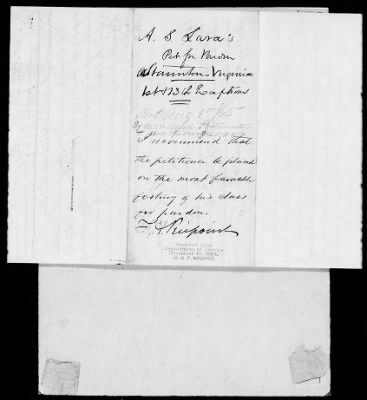 A. S. Lara's
Pet for Pardon
Staunton Virginia
1st & 13th Exception
I recommend that
the petitioner be placed
on the most favorable
footing of his class
for pardon.
F. H. Peirpoint